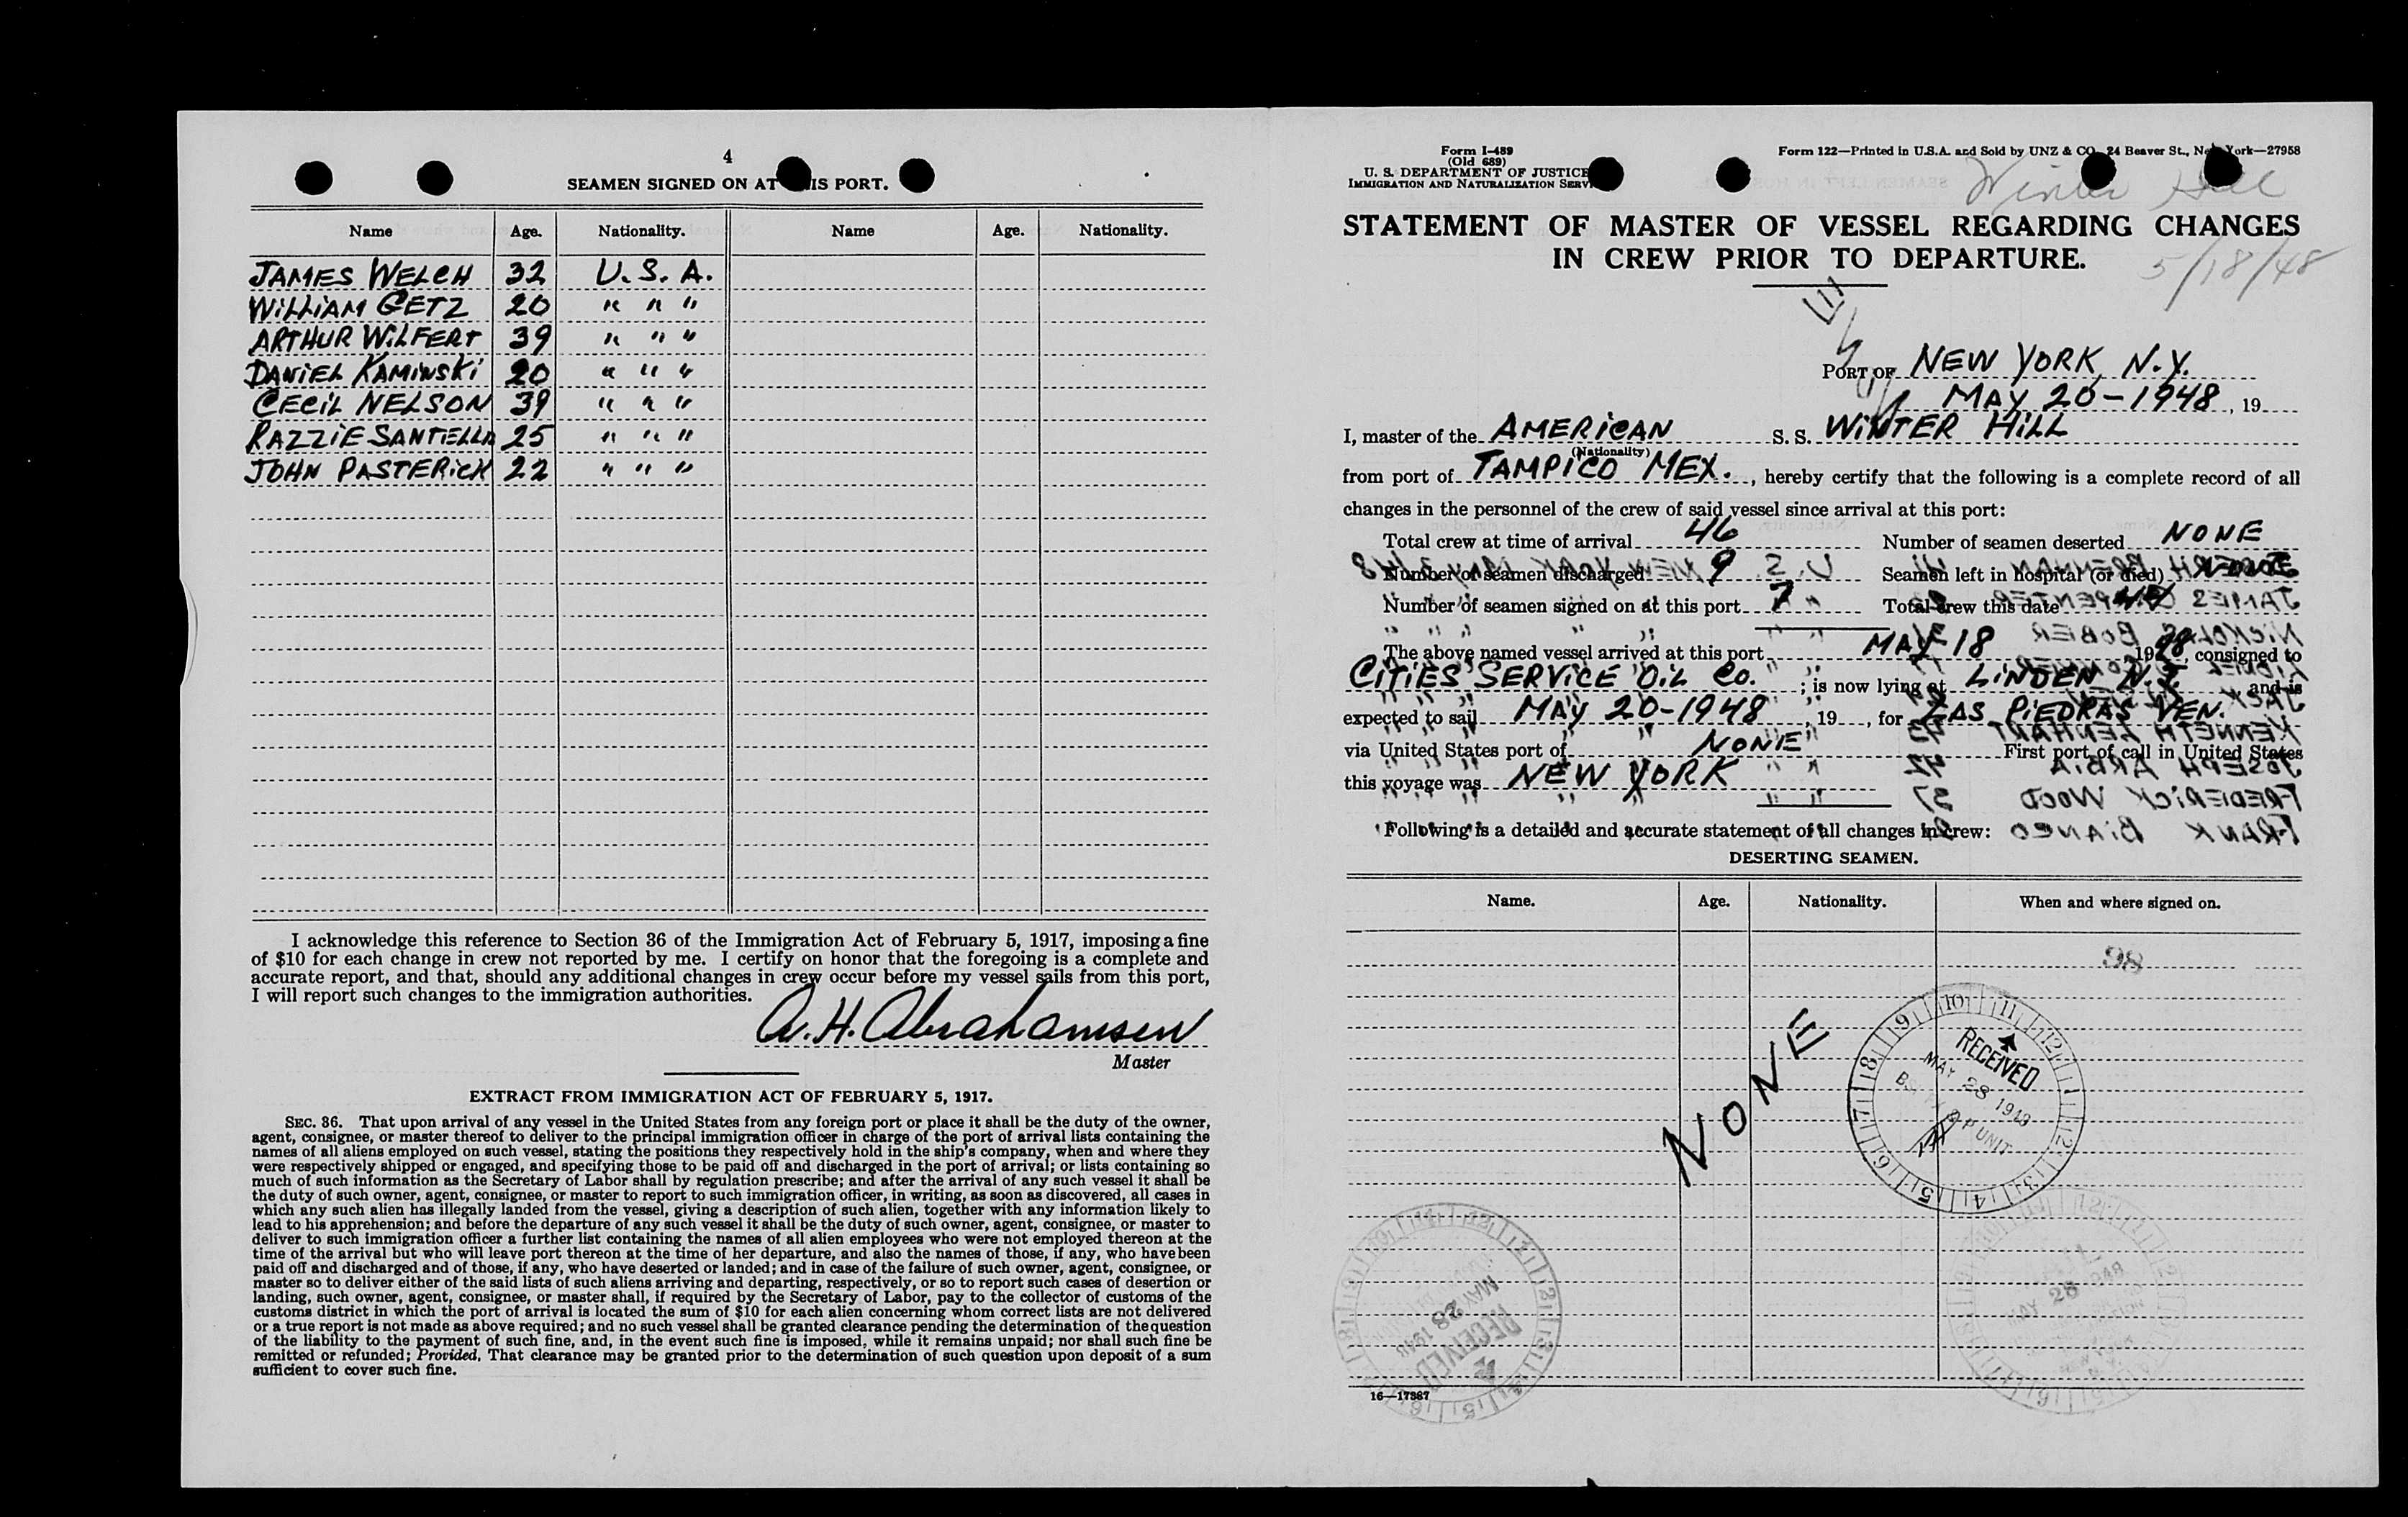 4
SEAMEN SIGNED ON AT THIS PORT.
Name Age. Nationality. Name Age. Nationality.
JAMES WELCH 32 U.S.A.
WILLIAM GETZ 20 " " "
ARTHUR WILFERT 39 " " "
DANIEL KAMINSKI 20 " " "
CECIL NELSON 39 " " "
RAZZIE SANTIELLA 25 " " "
JOHN PASTERICK 22 " " "
I acknowledge this reference to Section 36 of the Immigration Act of February 5, 1917, imposing a fine
of $10 for each change in crew not reported by me. I certify on honor that the foregoing is a complete and
accurate report, and that, should any additional changes in crew occur before my vessel sails from this port,
I will report such changes to the immigration authorities.
A. H. Abrahamsen
Master
EXTRACT FROM IMMIGRATION ACT OF FEBRUARY 5, 1917.
SEC. 36. That upon arrival of any vessel in the United States from any foreign port or place it shall be the duty of the owner,
agent, consignee, or master thereof to deliver to the principal immigration officer in charge of the port of arrival lists containing the
names of all aliens employed on such vessel, stating the positions they respectively hold in the ship's company, when and where they
were respectively shipped or engaged, and specifying those to be paid off and discharged in the port of arrival; or lists containing so
much of such information as the Secretary of Labor shall by regulation prescribe; and after the arrival of any such vessel it shall be
the duty of such owner, agent, consignee, or master to report to such immigration officer, in writing, as soon as discovered, all cases in
which any such alien has illegally landed from the vessel, giving a description of such alien, together with any information likely to
lead to his apprehension; and before the departure of any such vessel it shall be the duty of such owner, agent, consignee, or master to
deliver to such immigration officer a further list containing the names of all alien employees who were not employed thereon at the
time of the arrival but who will leave port thereon at the time of her departure, and also the names of those, if any, who have been
paid off and discharged and of those, if any, who have deserted or landed; and in case of the failure of such owner, agent, consignee, or
master so to deliver either of the said lists of such aliens arriving and departing, respectively, or so to report such cases of desertion or
landing, such owner, agent, consignee, or master shall, if required by the Secretary of Labor, pay to the collector of customs of the
customs district in which the port of arrival is located the sum of $10 for each alien concerning whom correct lists are not delivered
or a true report is not made as above required; and no such vessel shall be granted clearance pending the determination of the question
of the liability to the payment of such fine, and, in the event such fine is imposed, while it remains unpaid; nor shall such fine be
remitted or refunded; Provided, That clearance may be granted prior to the determination of such question upon deposit of a sum
sufficient to cover such fine.
Form I-489
(Old 689)
U. S. DEPARTMENT OF JUSTICE
IMMIGRATION AND NATURALIZATION SERVICE
Form 122—Printed in U.S.A. and Sold by UNZ & CO., 24 Beaver St., New York—27958
Winter Hill
STATEMENT OF MASTER OF VESSEL REGARDING CHANGES
IN CREW PRIOR TO DEPARTURE.
5/18/48
PORT OF NEW YORK, N.Y.
MAY 20-1948, 19
I, master of the AMERICAN S. S. WINTER HILL
(Nationality)
from port of TAMPICO MEX., hereby certify that the following is a complete record of all
changes in the personnel of the crew of said vessel since arrival at this port:
Total crew at time of arrival 46 Number of seamen deserted NONE
Number of seamen discharged 9 Seamen left in hospital (or died)
Number of seamen signed on at this port 7 Total crew this date
The above named vessel arrived at this port MAY 18 1948, consigned to
CITIES SERVICE OIL CO.; is now lying at LINDEN N.J. and is
expected to sail MAY 20-1948, 19, for LAS PIEDRAS VEN.
via United States port of NONE First port of call in United States
this voyage was NEW YORK
Following is a detailed and accurate statement of all changes in crew:
DESERTING SEAMEN.
Name. Age. Nationality. When and where signed on.
98
NONE
RECEIVED
MAY 28 1948
UNIT
RECEIVED
MAY 28 1948
MAY 28 1948
16—17387